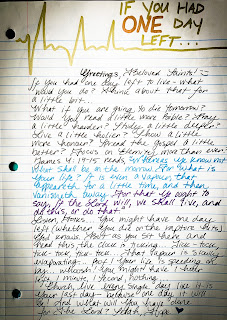 IF YOU HAD
ONE DAY
LEFT...
Greetings, Beloved Saints! :)
If you had one day left to live - what
would you do? Think about that for
a little bit...
What if you are going to die tomorrow?
Would you read a little more Bible? Pray
a little harder? Study a little deeper?
Give a little helpier? Show a little
more
Spread the Gospel a little
better? Focus on
more than ever?
James 4:14-15 reads, "Whereas ye know not
what shall be on the morrow. For what is
your life? It is even a vapour, that
appeareth for a little time, and then
vanisheth away. For that ye ought to
say, If the Lord will, we shall live, and
do this, or do that."
You might have one day
left (whether you die or the rapture hits)
God knows. But as you sit there and
read this the clock is ticking... Tick-tock,
tick-tock, tick-tock... That
is slowly
evaporating... Poof! Your life is
You might have 1 hour
left, 1 minute, 1 second
Church, live every single day like it is
your last day - because one day it will
be. And what will you have done
for the Lord?